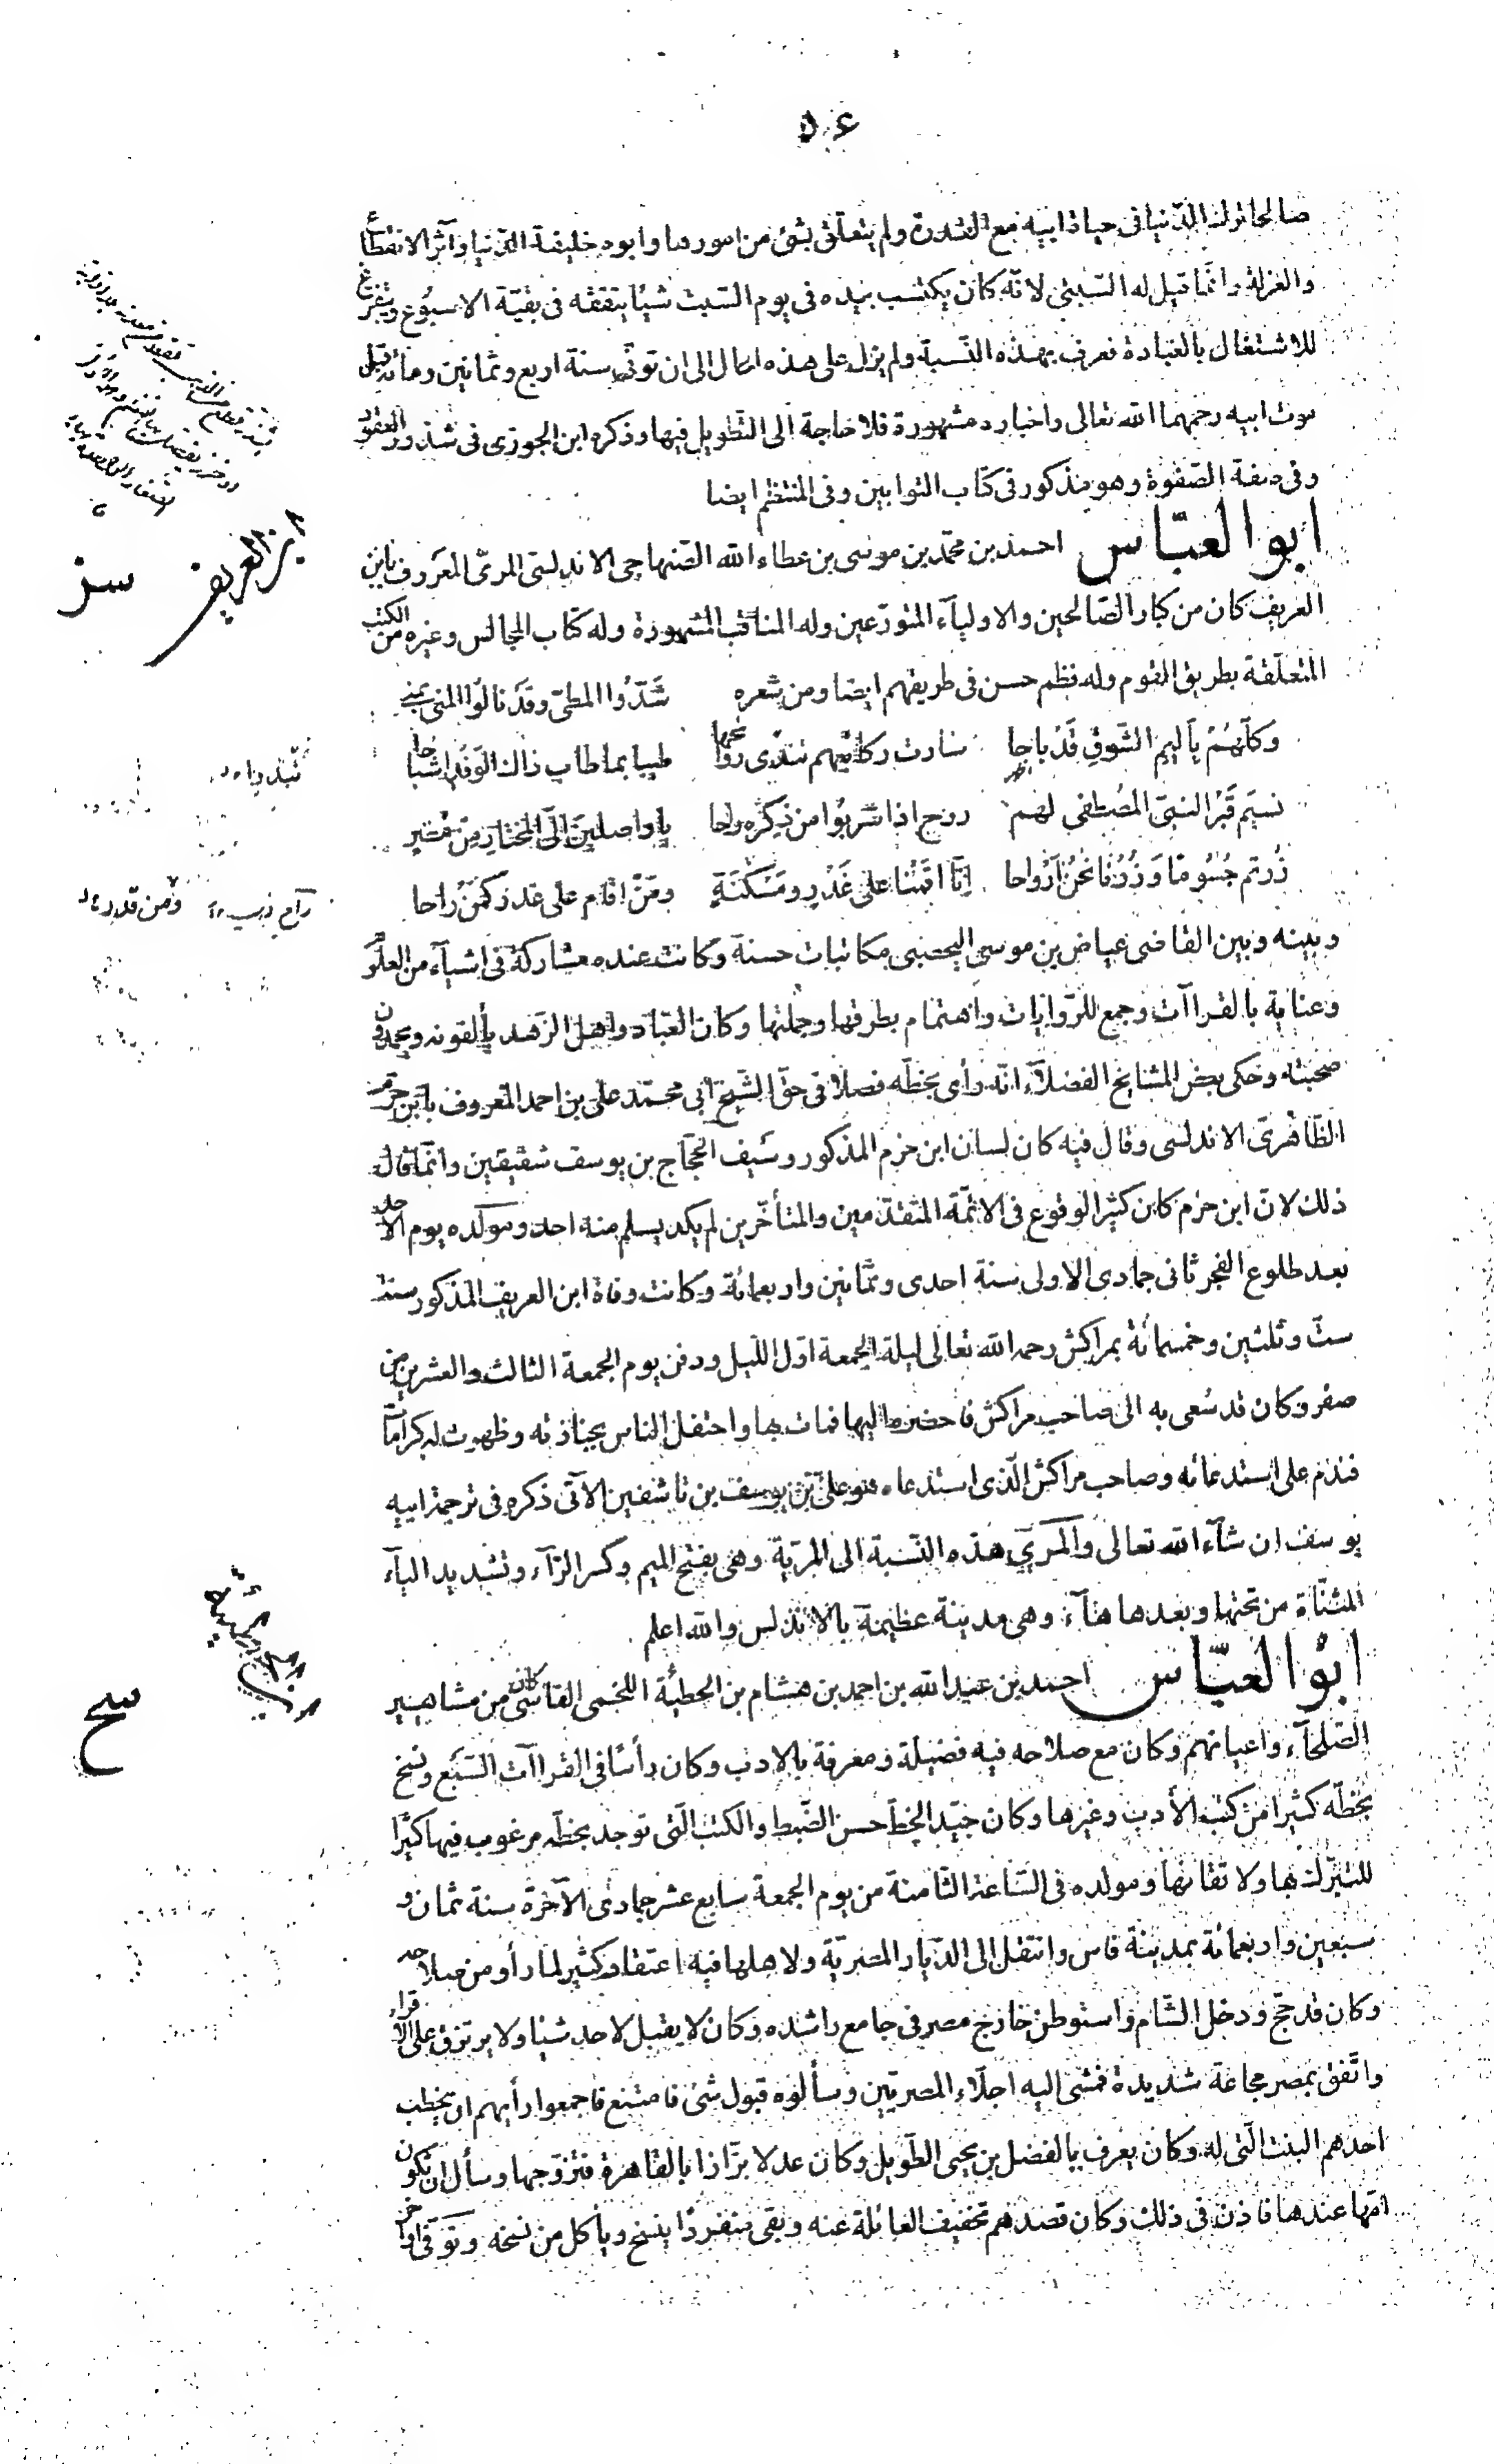 ٥٤
صالحا ترك الدّنيا فى حياة ابيه مع القدرة ولم يتعلّق بشئ من امورها وابوه خليفة الدّنيا وآثر الانقطاع
والعزلة وانّما قيل له السّبتى لانّه كان يكتسب بيده فى يوم السّبت شيئا ينفقه فى بقيّة الاسبوع ويتفرغ
للاشتغال بالعبادة فعرف بهذه النّسبة ولم يزل على هذه الحال الى ان توفّى سنة اربع وثمانين ومائة قبل
موت ابيه رحمهما الله تعالى واخباره مشهورة فلا حاجة الى التّطويل فيها وذكره ابن الجوزى فى شذور العقود
وفى صفة الصّفوة وهو مذكور فى كتاب التوابين وفى المنتظم ايضا
ابو العبّاس احمد بن محمّد بن موسى بن عطاء الله الصّنهاجى الاندلسىّ المرىّ المعروف بابن
العريف كان من كبار الصّالحين والاولياء المتورّعين وله المناقب المشهورة وله كتاب المجالس وغيره من الكتب
المتعلّقة بطريق القوم وله نظم حسن فى طريقهم ايضا ومن شعره شَدّوا المطىّ وقد نالوا المنى بمنى
وكلّهم بأليم الشّوق قد باحا سارت ركائبهم تندى روائحها طيبا بما طاب ذاك الوفد اشباحا
نسيم قبر النبىّ المصطفى لهم روح اذا شربوا من ذكره راحا يا واصلين الى المختار من مضر
زرتم جسوما وزرنا نحن ارواحا انّا اقمنا على عذر ومسكنة ومن اقام على عذر كمن راحا
وبينه وبين القاضى عياض بن موسى اليحصبى مكاتبات حسنة وكانت عنده مشاركة فى اشيآء من العلوم
وعناية بالقراآت وجمع للرّوايات واهتمام بطرقها وجملتها وكان العبّاد واهل الزّهد يألفونه ويحمدون
صحبته وحكى بعض المشايخ الفضلآء انّه رأى بخطّه فصلا فى حقّ الشّيخ ابى محمّد على بن احمد المعروف بابن حزم
الظّاهرىّ الاندلسى وقال فيه كان لسان ابن حزم المذكور وسيف الحجّاج بن يوسف شقيقين وانّما قال
ذلك لانّ ابن حزم كان كثير الوقوع فى الائمّة المتقدّمين والمتأخّرين لم يكد يسلم منه احد ومولده يوم الاحد
بعد طلوع الفجر ثانى جمادى الاولى سنة احدى وثمانين واربعمائة وكانت وفاة ابن العريف المذكور سنة
ستّ وثلثين وخمسمائة بمراكش رحمه الله تعالى ليلة الجمعة اوّل اللّيل ودفن يوم الجمعة الثالث والعشرين من
صفر وكان قد سعى به الى صاحب مراكش فاحضره اليها فمات بها واحتفل الناس بجنازته وظهرت له كرامات
فندم على استدعائه وصاحب مراكش الّذى استدعاه هو علىّ بن يوسف بن تاشفين الآتى ذكره فى ترجمة ابيه
يوسف ان شآء الله تعالى والمرىّ هذه النّسبة الى المريّة وهى بفتح الميم وكسر الرّآء وتشديد اليآء
المثنّاة من تحتها وبعدها هآء وهى مدينة عظيمة بالاندلس والله اعلم
ابو العبّاس احمد بن عبد الله بن احمد بن هشام بن الحطيئة اللخمى الفاسّى كان من مشاهير
الصّلحآء واعيانهم وكان مع صلاحه فيه فضيلة ومعرفة بالادب وكان رأسا فى القراآت السّبع ونسخ
بخطّه كثيرا من كتب الأدب وغيرها وكان جيّد الخطّ حسن الضّبط والكتب الّتى توجد بخطّه مرغوب فيها كثيرا
للتبرّك بها ولاتقانها ومولده فى السّاعة الثّامنة من يوم الجمعة سابع عشر جمادى الآخرة سنة ثمان و
سبعين واربعمائة بمدينة فاس وانتقل الى الدّيار المصريّة ولاهلها فيه اعتقاد كثير لما رأوه من صلاحه
وكان قد حجّ ودخل الشّام واستوطن خارج مصر فى جامع راشده وكان لا يقبل لاحد شيئا ولا يرتزق على الاقراء
واتّفق بمصر مجاعة شديدة فمشى اليه اجلّاء المصريّين وسألوه قبول شئ فامتنع فاجمعوا رأيهم ان يخطب
احدهم البنت الّتى له وكان يعرف بالفضل بن يحيى الطّويل وكان عدلا بزّازا بالقاهرة فتزوّجها وسأل ان تكون
امّها عندها فاذن فى ذلك وكان قصدهم تخفيف العائلة عنه وبقى منفردا ينسخ ويأكل من نسخه وتوفّى اواخر
ابن العريف سز
سح